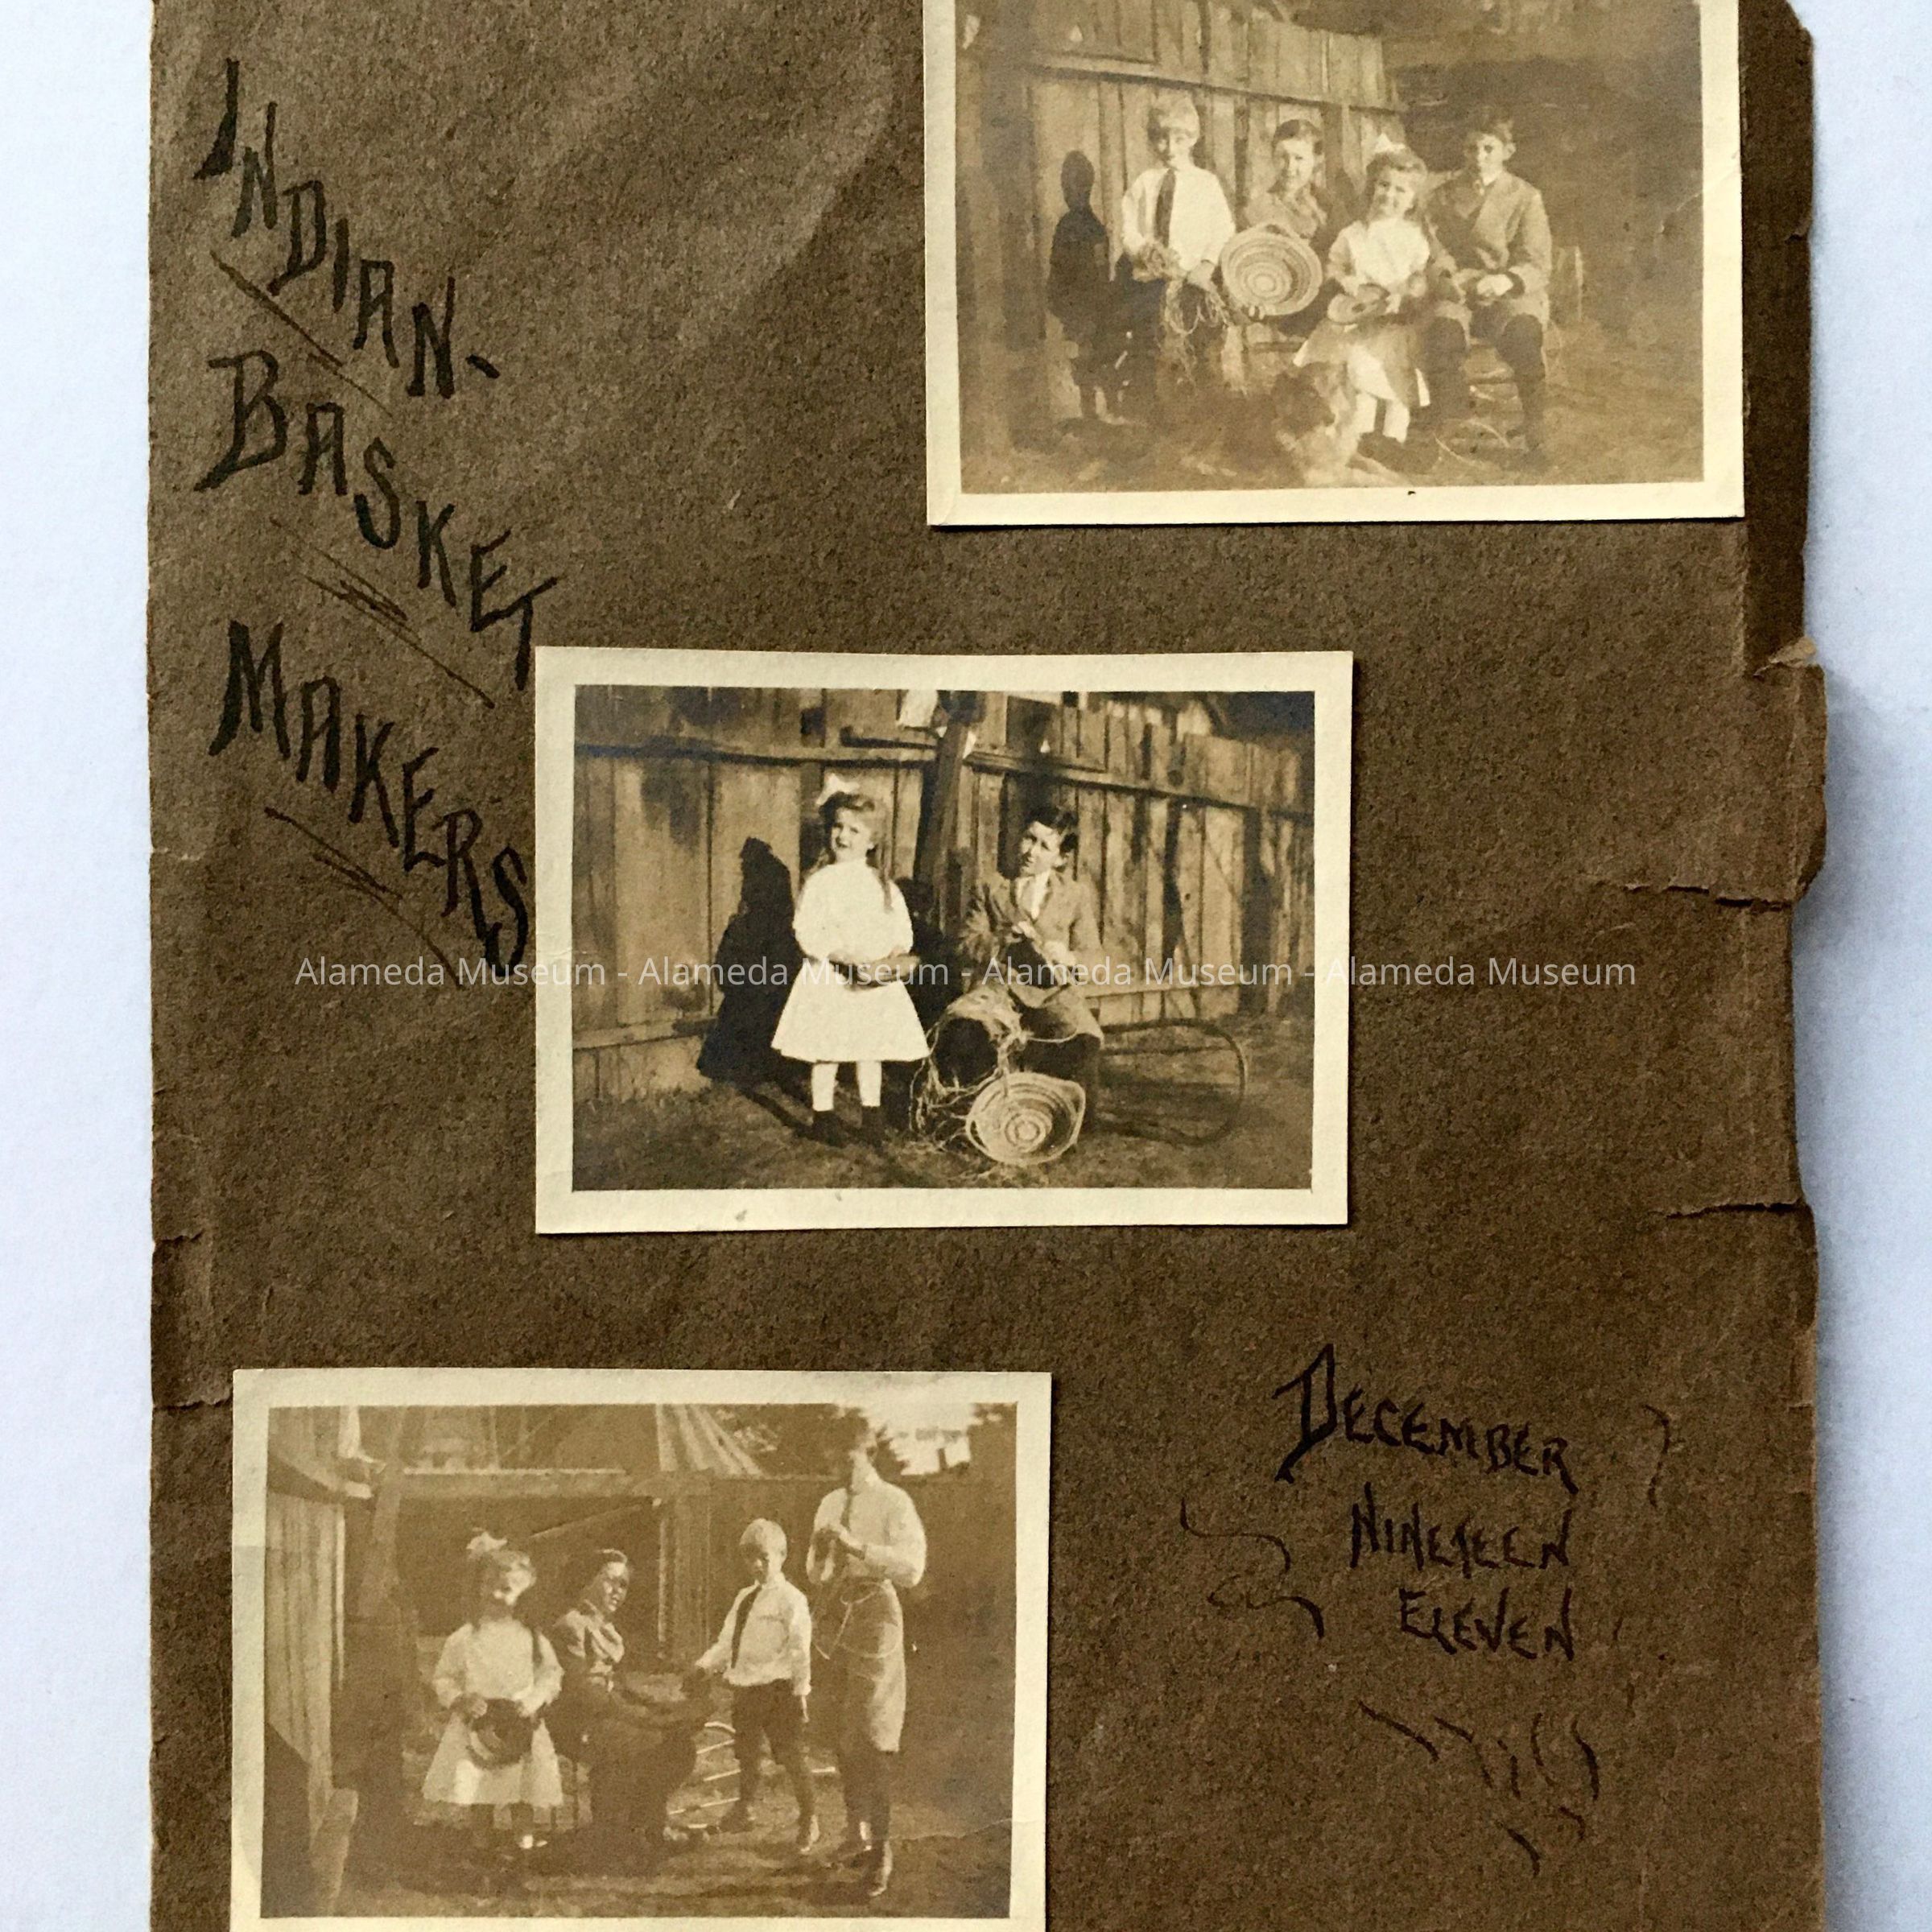 INDIAN-
BASKET
MAKERS
Alameda Museum - Alameda Museum - Alameda Museum - Alameda Museum
DECEMBER
NINETEEN
ELEVEN